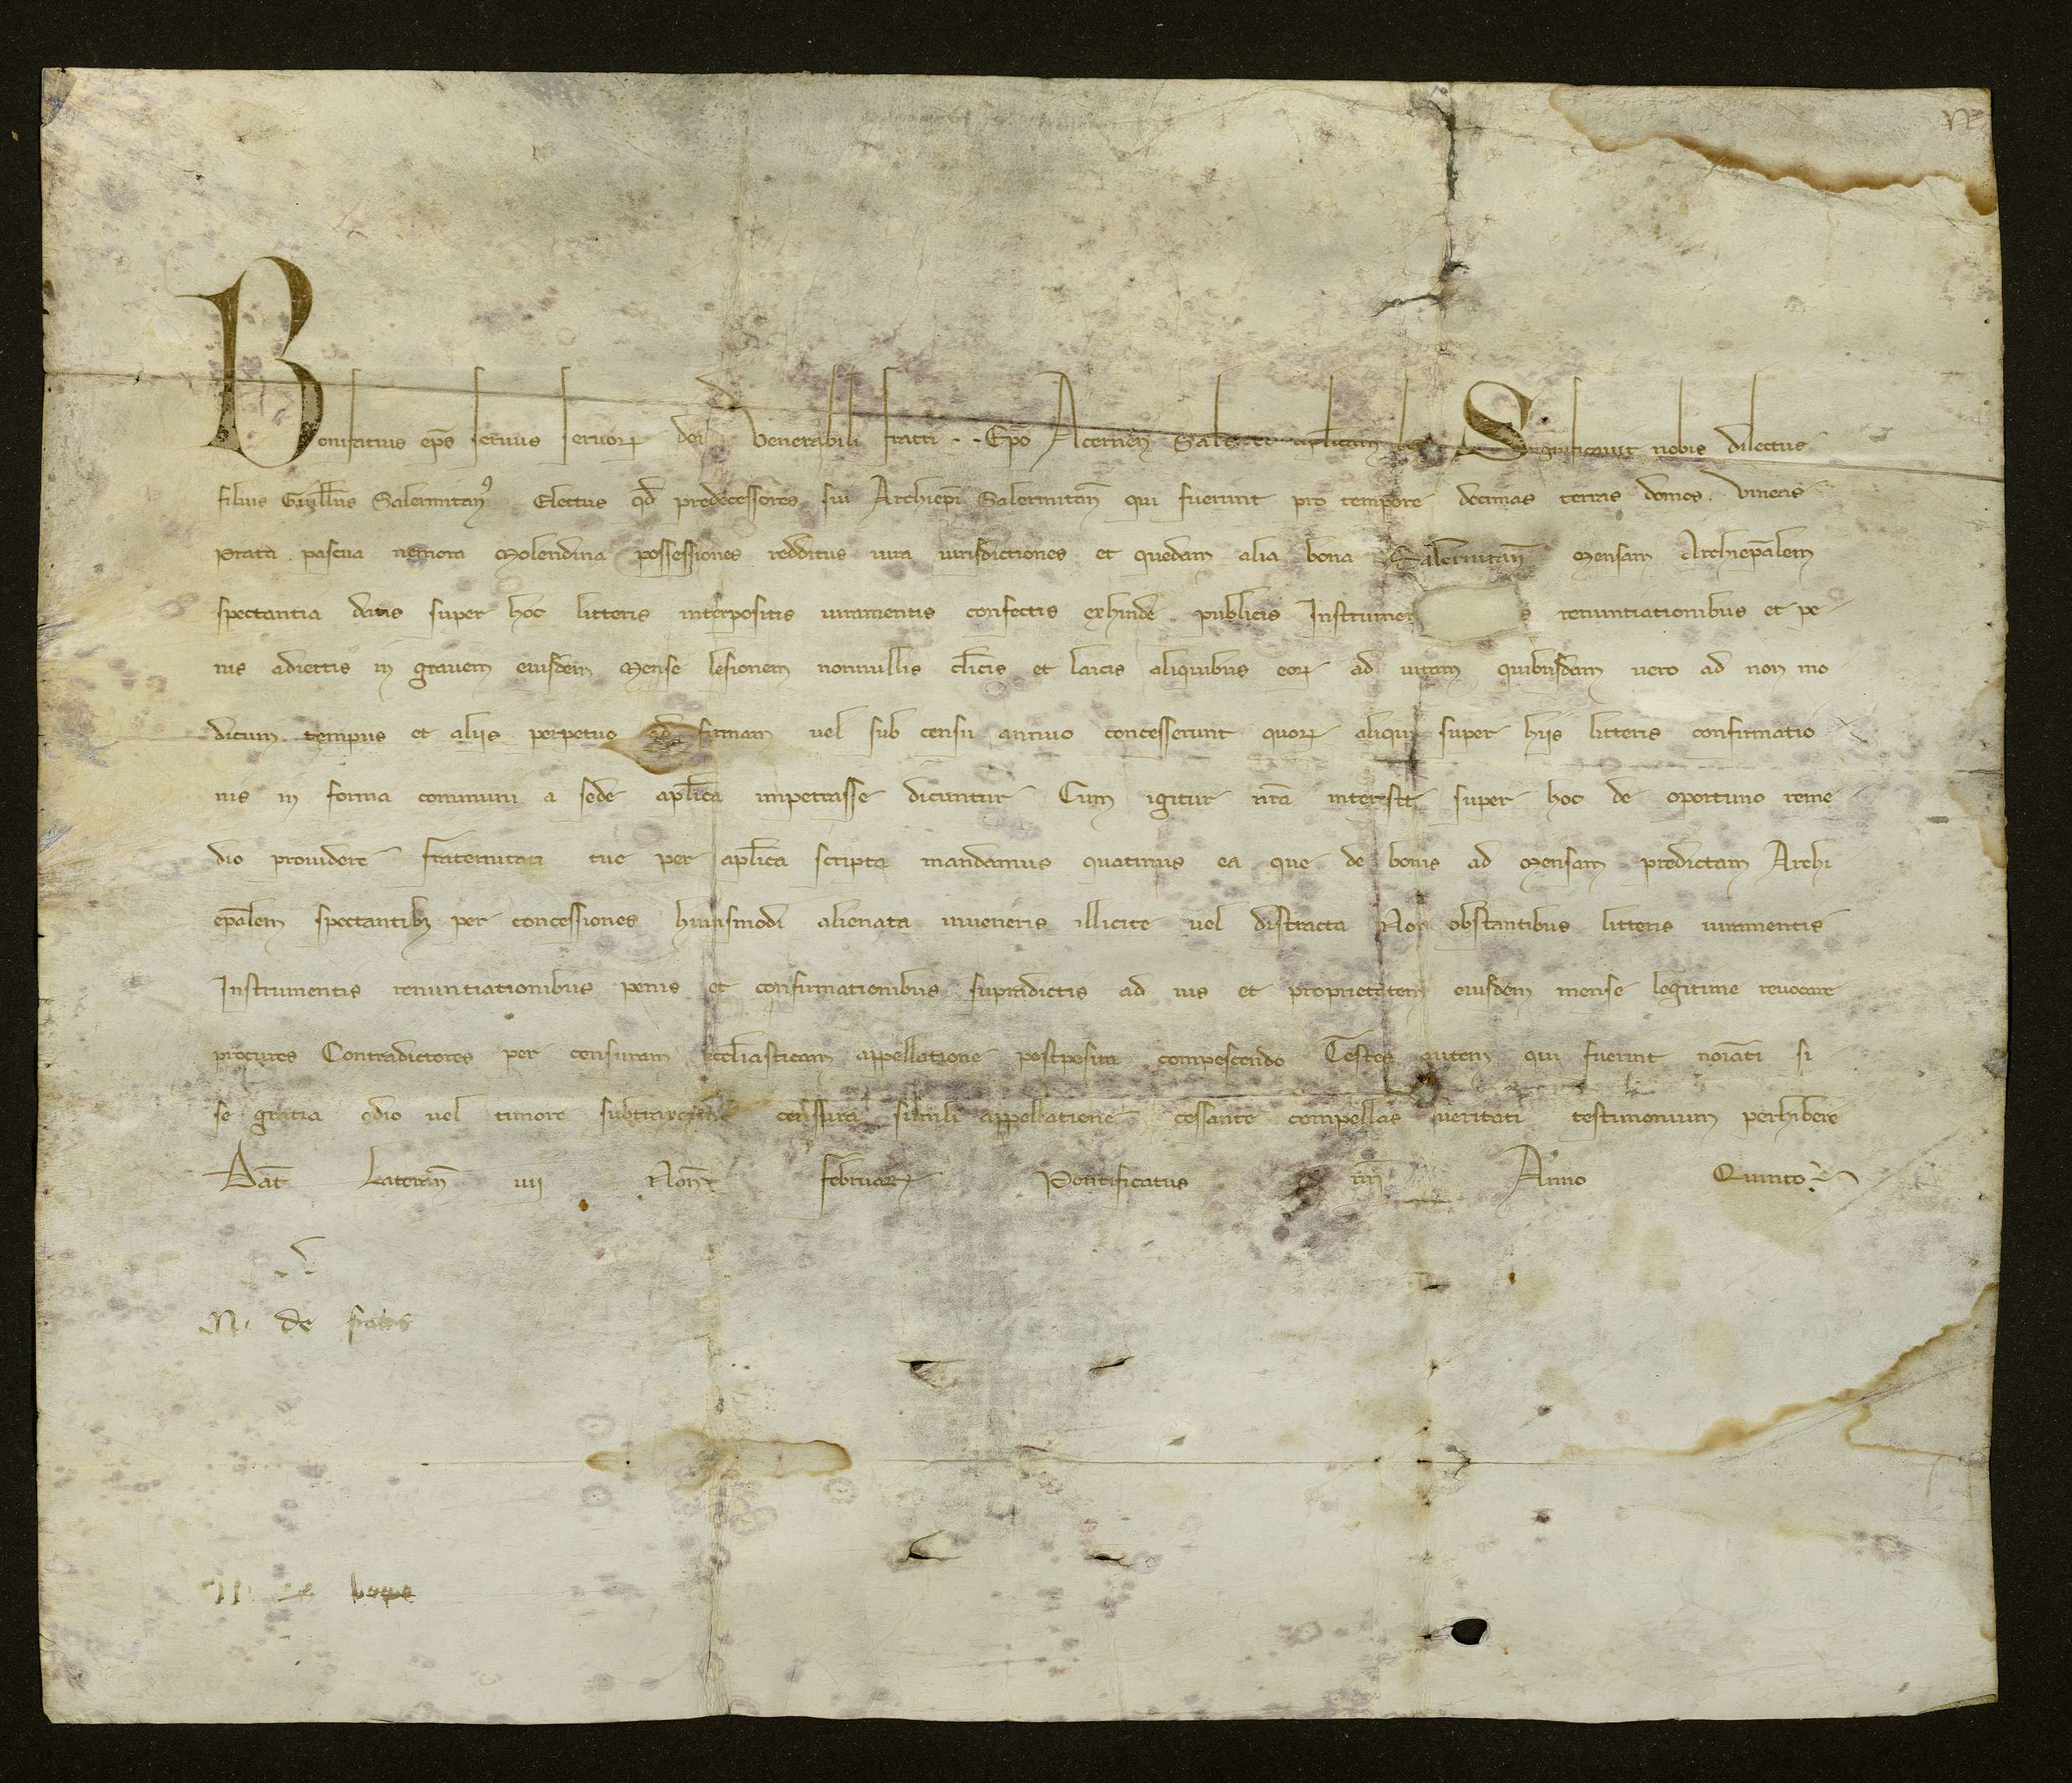 Bonifatius ep̅s seruus seruoꝝ dei Venerabili fratri . . Ep̅o Acernen̅ Sal̅t et ap̅licam ben̅ Significauit nobis dilectus
filius Guill̅us Salernitanꝰ Electus qd̅ predecessores sui Archiep̅i Salernitan̅ qui fuerunt pro tempore decimas terras domos . vineas
Prata pascua nemora Molendina possessiones redditus iura iurisdictiones et quedam alia bona Salernitan̅ Mensam Archiep̅alem
spectantia datis super hoc litteris interpositis iuramentis confectis exhinde publicis Instrumen s renuntiationibus et pe
nis adiectis in grauem eiusdem Mense lesionem nonnullis cl̅icis et laicis aliquibus eoꝝ ad uitam quibusdam uero ad non mo
dicum tempus et aliis perpetuo ad firmam uel sub censu annuo concesserunt quoꝝ aliqui super hiis litteris confirmatio
nis in forma communi a sede ap̅lica impetrasse dicuntur Cum igitur nr̅a intersit super hoc de oportuno reme
dio prouidere fraternitati tue per ap̅lica scripta mandamus quatinus ea que de bonis ad Mensam predictam Archi
ep̅alem spectantibꝫ per concessiones huiusmodi alienata inueneris illicite uel distracta Non obstantibus litteris iuramentis
Instrumentis renuntiationibus penis et confirmationibus supradictis ad ius et proprietatem eiusdem mense legitime reuocare
procures Contradictores per censuram eccl̅iasticam appellatione postposita compescendo Testes autem qui fuerint no̅iati si
se gratia odio uel timore subtraxerint censura simili appellatione cessante compellas ueritati testimonium perhibere
Dat̅ Lateran̅ iiii Non̅ februaꝝ Pontificatus nr̅i Anno Quinto
N. de